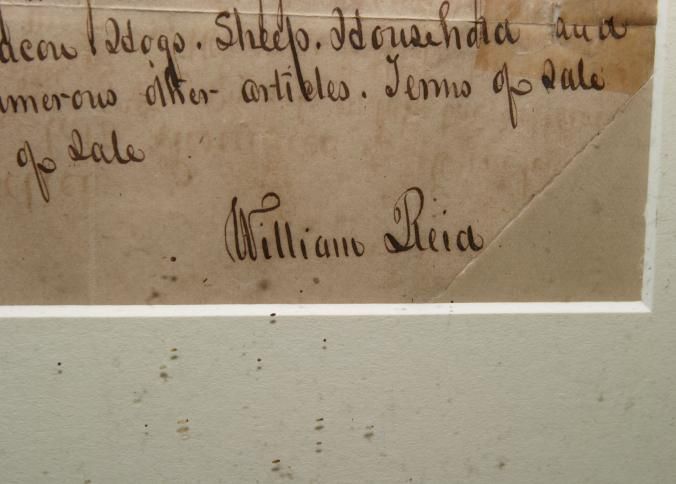 acon Hogs. Sheep. Household and
umerous other articles. Terms of Sale
of Sale
William Reid